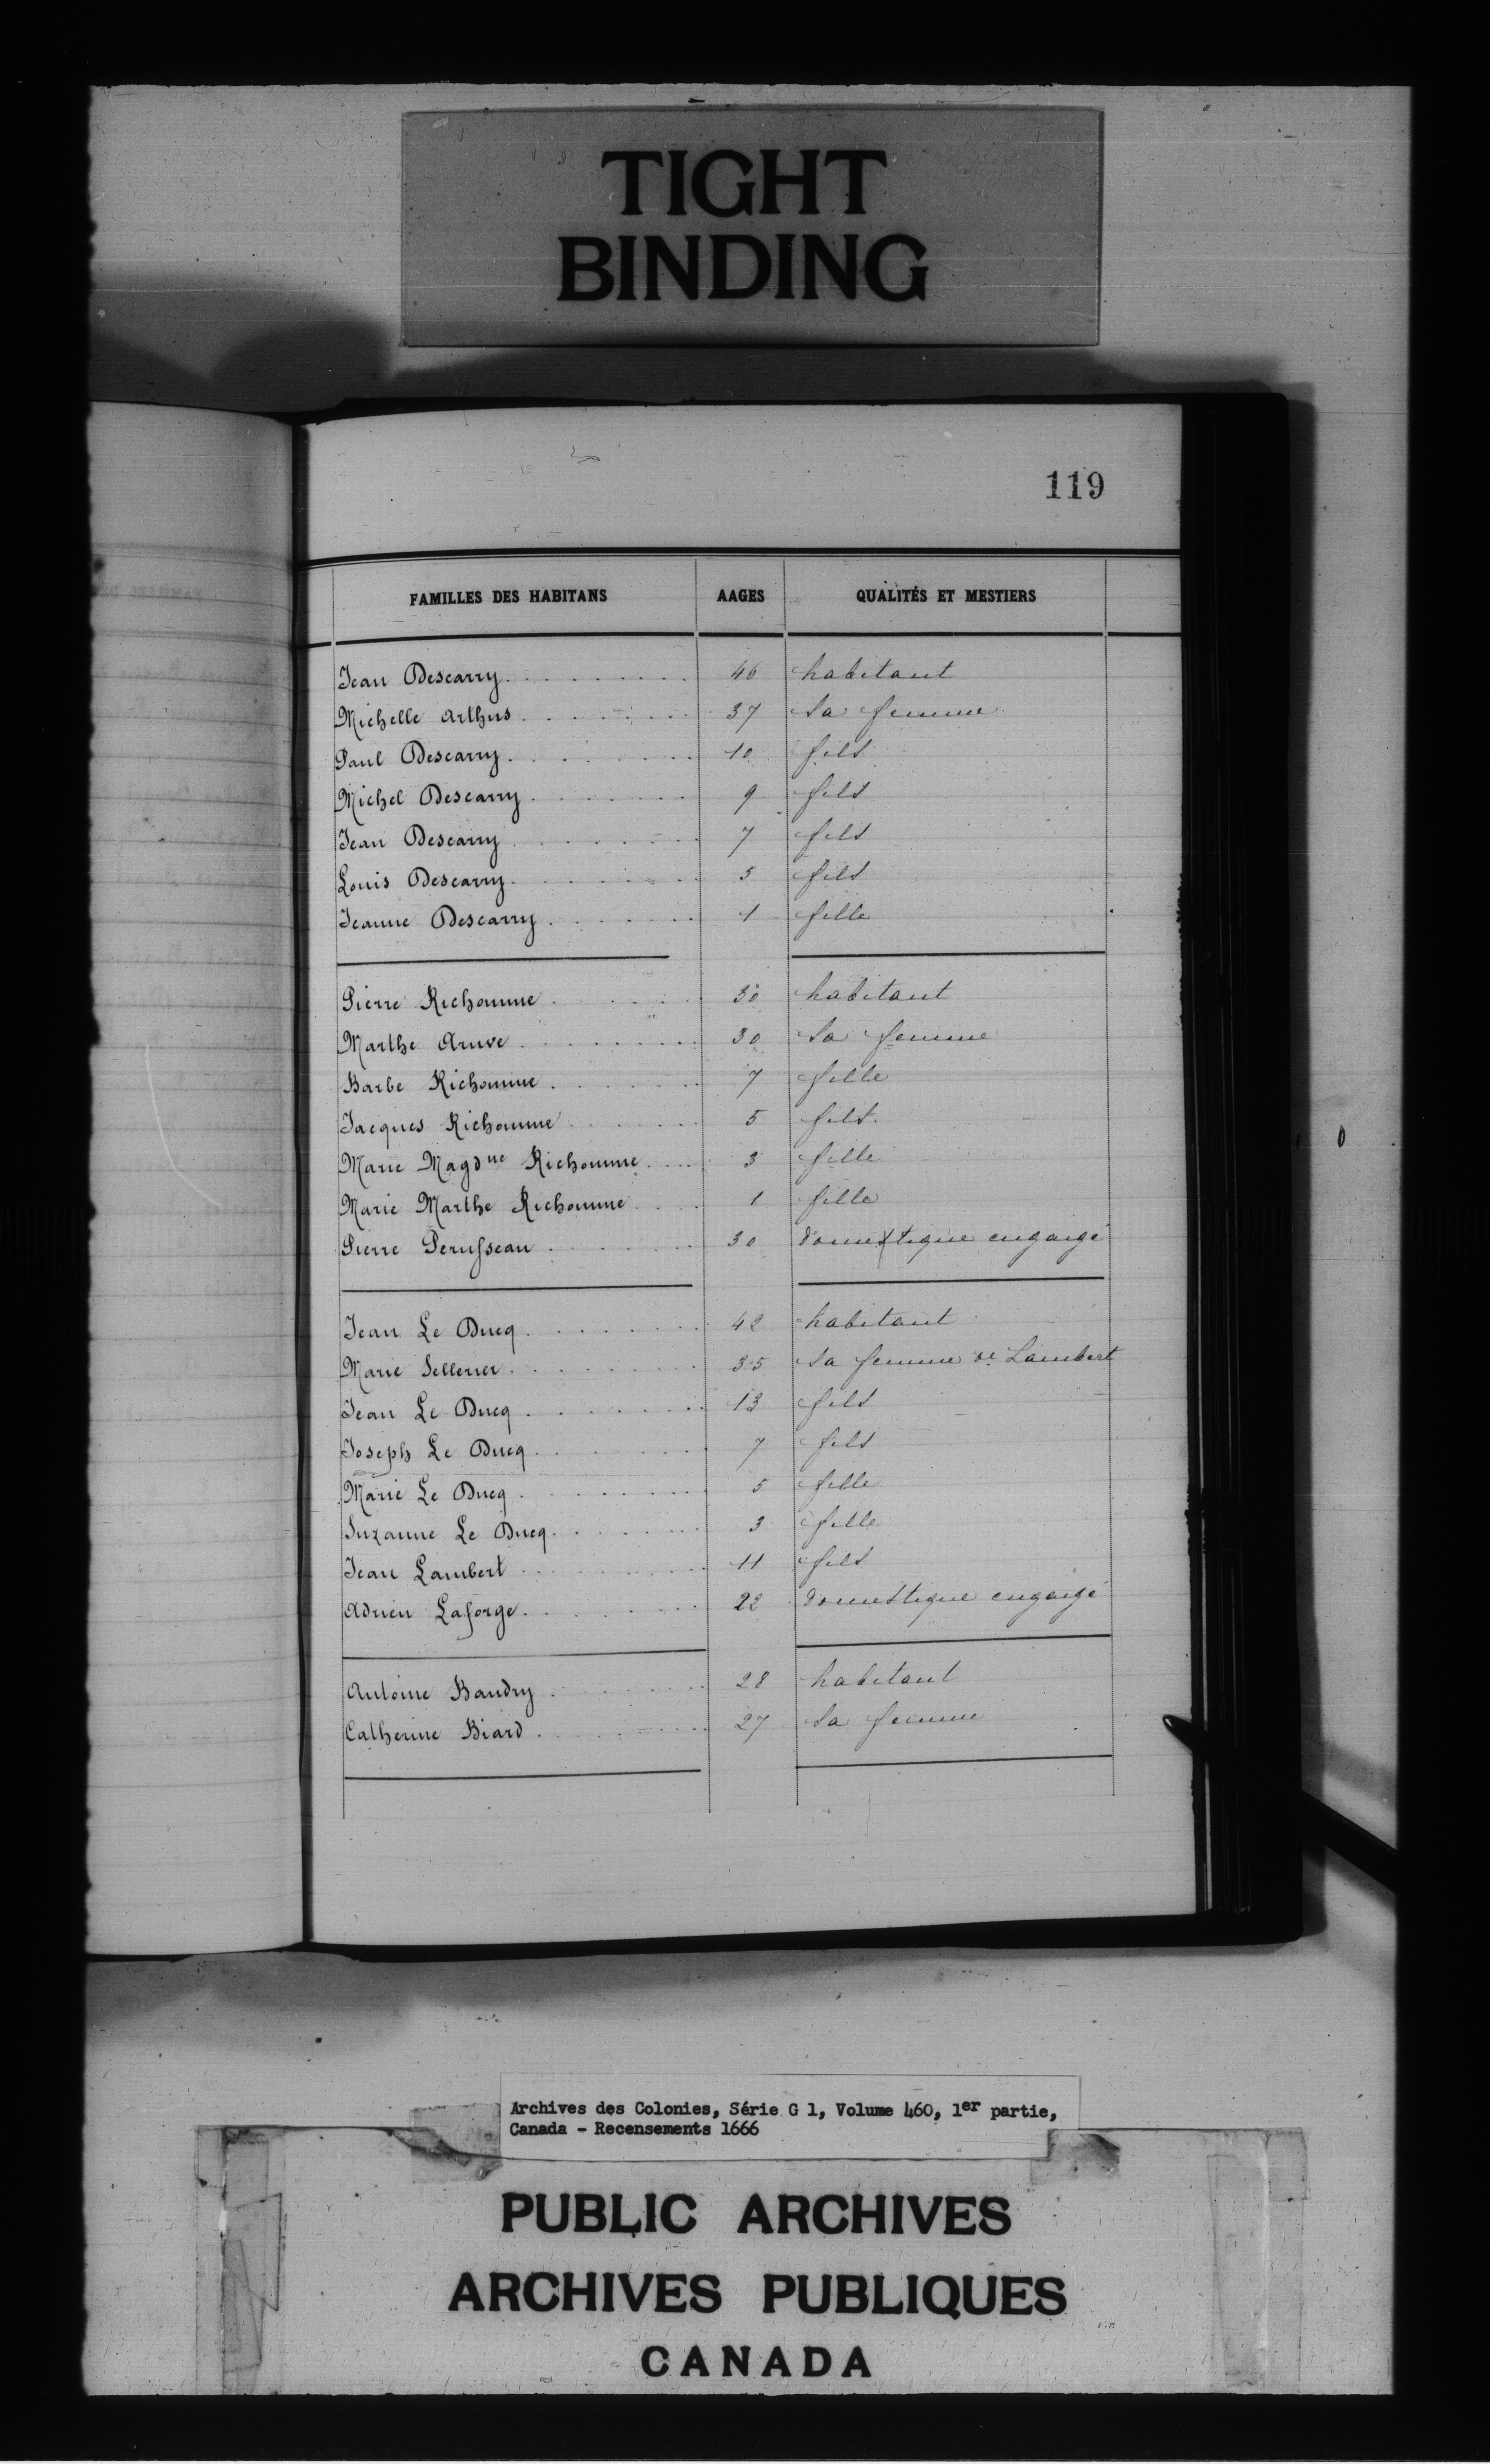 TIGHT
BINDING
119
FAMILLES DES HABITANS AAGES QUALITÉS ET MESTIERS
Jean Descarry 46 habitant
Michelle Arthus 37 sa femme
Paul Descarry 10 fils
Michel Descarry 9 fils
Jean Descarry 7 fils
Louis Descarry 5 fils
Jeanne Descarry 1 fille
Pierre Richomme 30 habitant
Marthe Aruve 30 sa femme
Barbe Richomme 7 fille
Jacques Richomme 5 fils
Marie Magdne Richomme 3 fille
Marie Marthe Richomme 1 fille
Pierre Perusseau 30 domestique engaigé
Jean Le Ducq 42 habitant
Marie Sellerier 35 sa femme ve Lambert
Jean Le Ducq 13 fils
Joseph Le Ducq 7 fils
Marie Le Ducq 5 fille
Suzanne Le Ducq 3 fille
Jean Lambert 11 fils
Adrien Laforge 22 domestique engaigé
Antoine Baudry 28 habitant
Catherine Biard 27 sa femme
Archives des Colonies, Série G 1, Volume 460, 1er partie,
Canada - Recensements 1666
PUBLIC ARCHIVES
ARCHIVES PUBLIQUES
CANADA